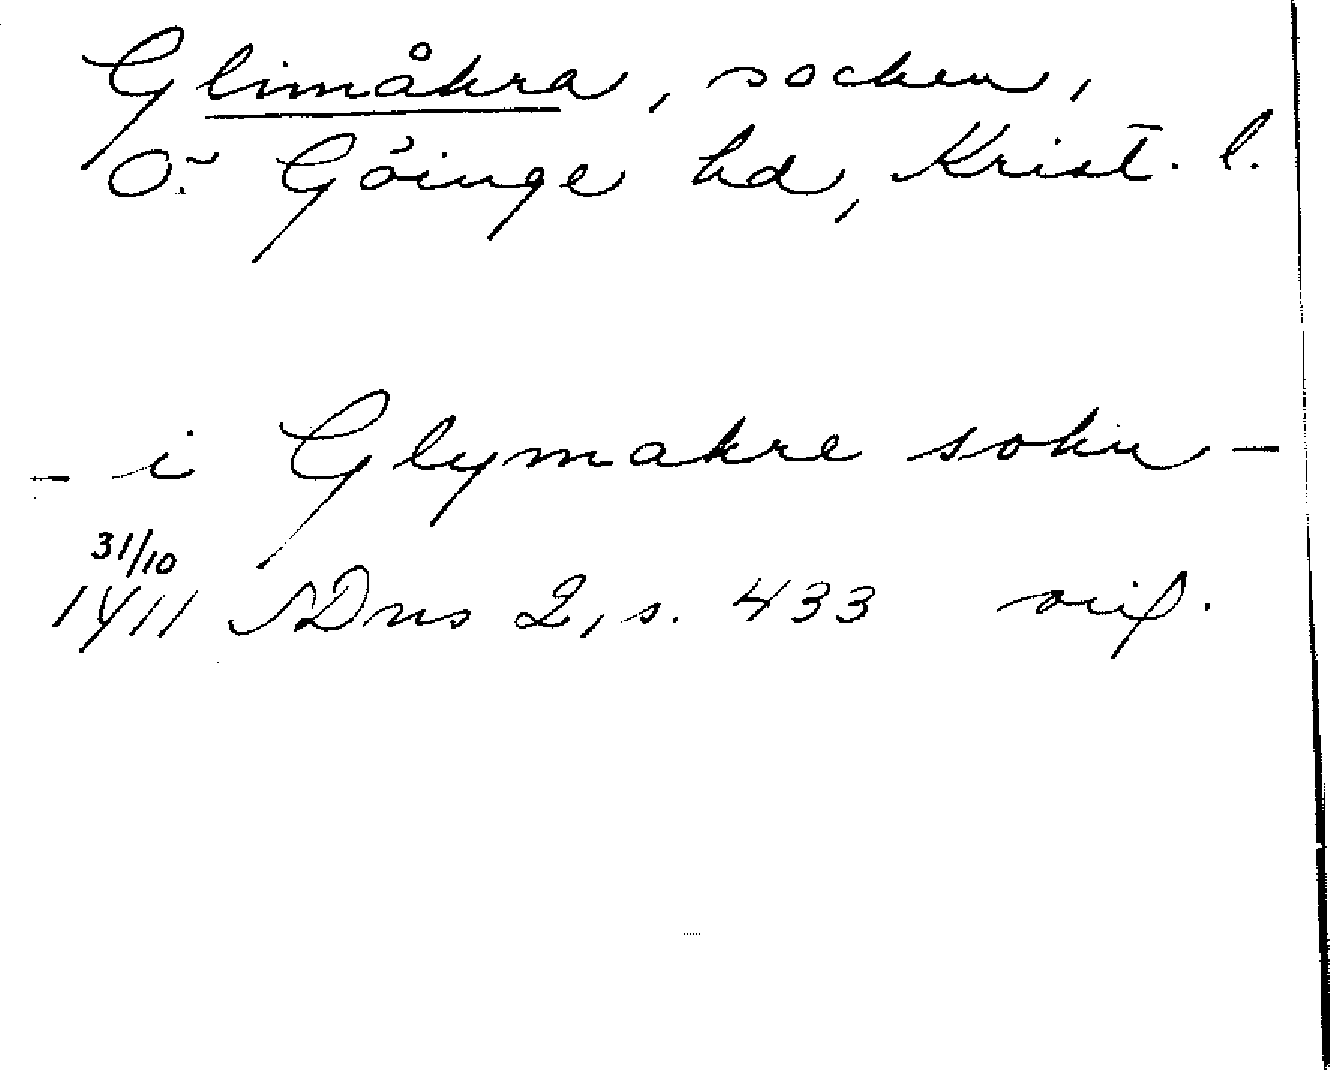 Glimåkra, socken,
Ö. Göinge hd, Krist. l.
- i Glymakre sokn -
31/10
1411 SDns 2, s. 433 orig.